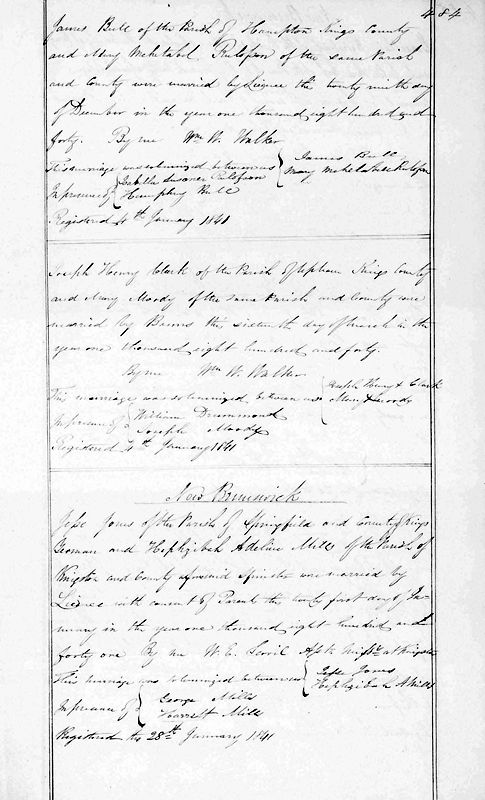 484
James Bull of the Parish of Hampton Kings County
and Mary Mehetabel Rulofson of the same Parish
and County were married by Licence this twenty ninth day
of December in the year one thousand eight hundred and
forty. By me Wm W. Walker
This marriage was solemnized between us { James Bull
Mary Mehetabel Rulofson
In presence of { Rulofson
Humphrey Bull
Registered 4th January 1841
Joseph Henry Clark of the Parish of Upham Kings County
and Mary Moody of the same Parish and County were
married by Banns this sixteenth day of March in the
year one thousand eight hundred and forty.
By me Wm W. Walker
This marriage was solemnized between us { Joseph Henry Clark
Mary Moody
In presence of { William Drummond
Joseph Moody
Registered 4th January 1841
New Brunswick
Jesse Jones of the Parish of Springfield and County of Kings
Yeoman and Hephzibah Adeline Mills of the Parish of
Kingston and County aforesaid Spinster were married by
Licence with consent of Parents this twenty first day of Jan-
uary in the year one thousand eight hundred and
forty one By me W. E. Scovil at Kingston
This marriage was solemnized between us { Jesse Jones
Hephzibah A Mills
In presence of { George Mills
Harriett Mills
Registered the 28th January 1841